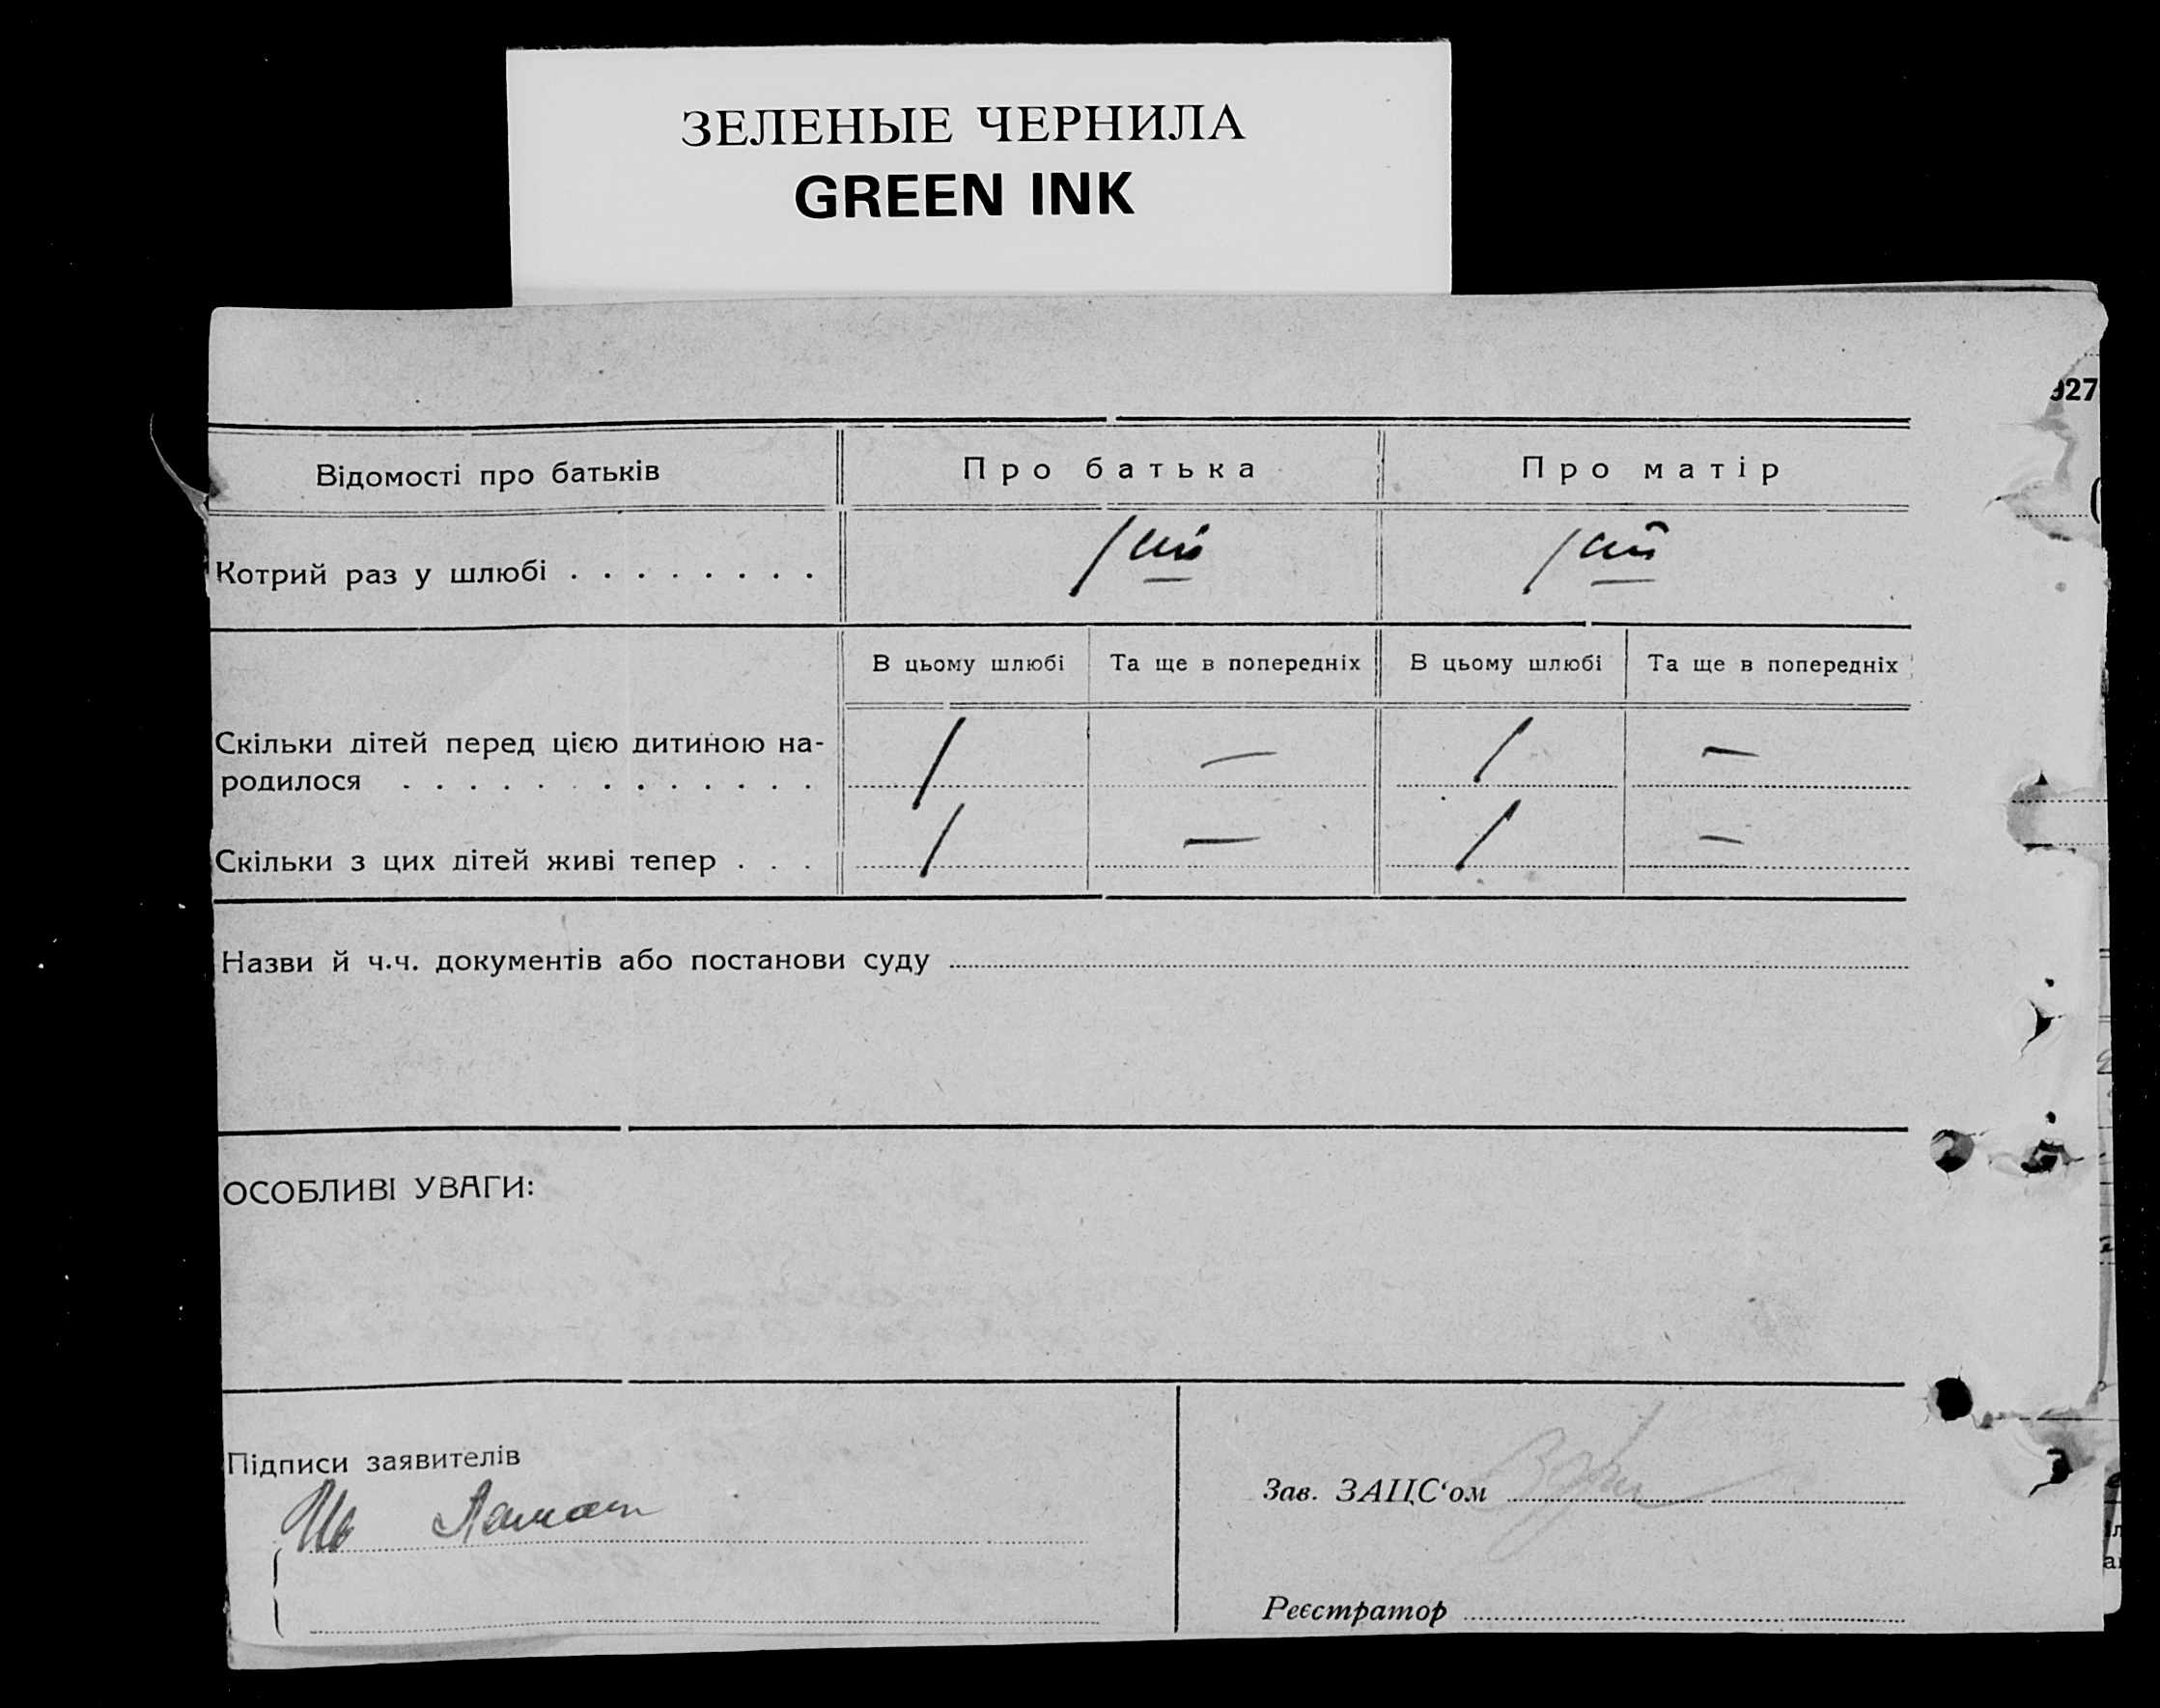 ЗЕЛЕНЫЕ ЧЕРНИЛА
GREEN INK
927
Відомості про батьків Про батька Про матір
Котрий раз у шлюбі . . . . . . . .
В цьому шлюбі Та ще в попередніх В цьому шлюбі Та ще в попередніх
Скільки дітей перед цією дитиною на- 1 — 1 —
родилося . . . . . . . . . . . . .
Скільки з цих дітей живі тепер . . . 1 — 1 —
Назви й ч.ч. документів або постанови суду
ОСОБЛИВІ УВАГИ:
Підписи заявителів
Зав. ЗАЦС‘ом
Реєстратор